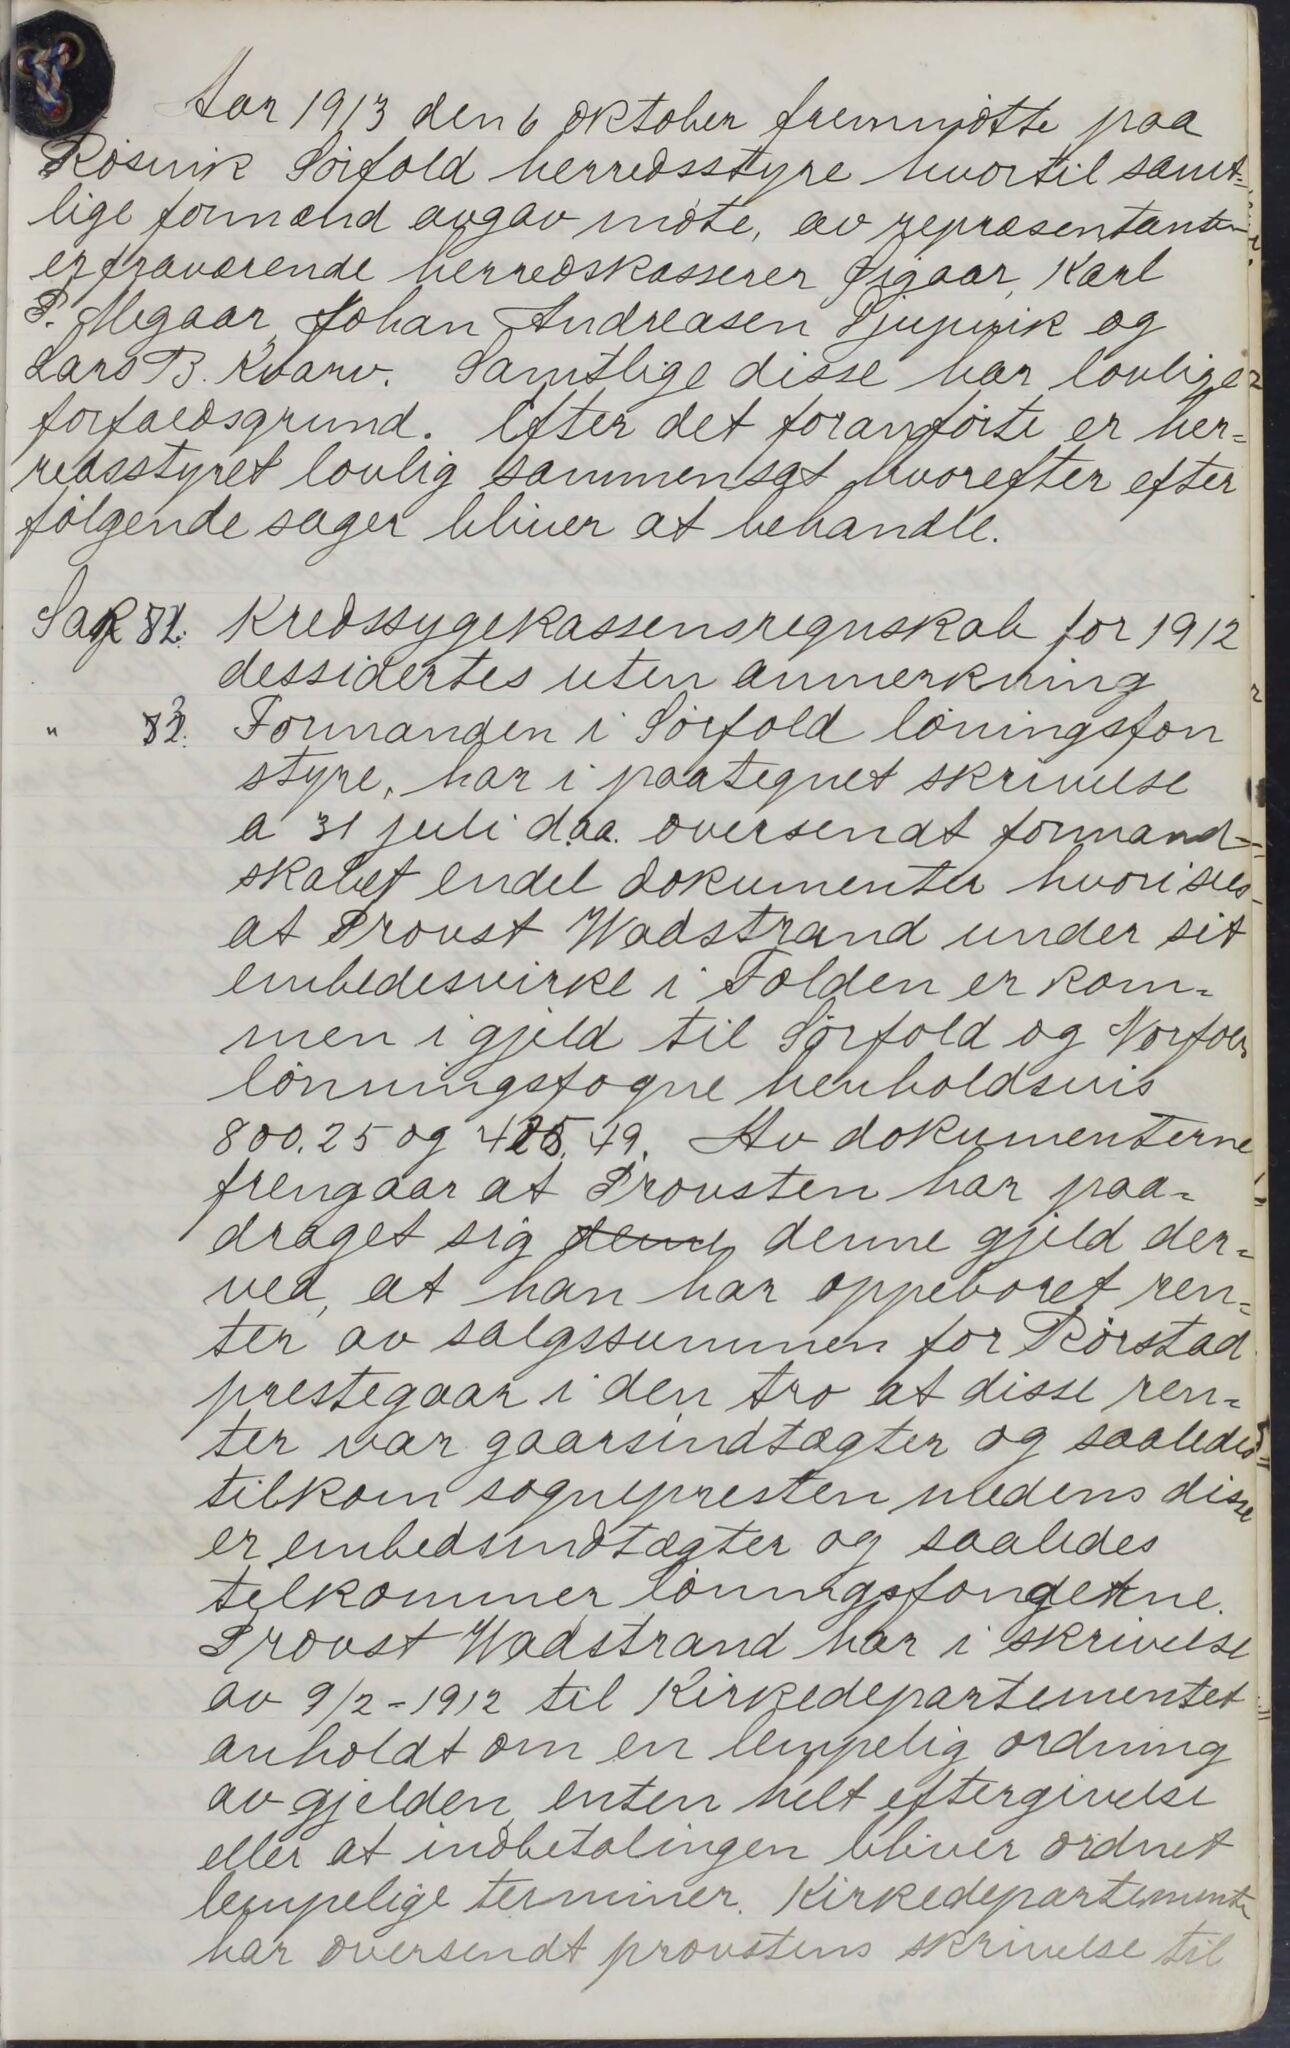 Aar 1913 den 6 oktober fremmøtte paa
Røsvik Sørfold herredsstyre hvortil samt=
lige formænd avgav møte, av repræsentanten
er fraværende herredskasserer Sigaar, Karl
P. Megaar, Johan Andreasen Djupvik og
Lars B. Kvarv. Samtlige disse har lovlige
forfaldsgrund. Efter det foranførte er her=
redsstyret lovlig sammensat hvorefter efter
følgende sager bliver at behandle.
Sak 82. Kredssygekassensregnskab for 1912
dessidertes uten anmerkning
" 83. Formanden i Sørfold løningsfon
styre, har i paategnet skrivelse
a 31 juli d.aa. oversendt formand=
skabet endel dokumenter hvori sees
at Provst Wadstrand under sit
embedesvirke i Folden er kom=
men i gjeld til Sørfold og Norfold
lønningsfogne henholdsvis
800.25 og 425.49. Av dokumenterne
frengaar at Provsten har paa=
draget sig denne denne gjeld der=
ved, at han har oppeboret ren=
ter av salgssummen for Rørstad
prestegaar i den tro at disse ren=
ter var gaarsindtægter og saaledes
tilkom sognepresten medens disse
er embedsindtægter og saaledes
tilkommer lønningsfondene.
Provst Wadstrand har i skrivelse
av 9/2-1912 til Kirkedepartementet
anholdt om en lempelig ordning
av gjelden, enten helt eftergivelse
eller at indbetalingen bliver ordnet
lempelige terminer. Kirkedepartemente
har oversendt provstens skrivelse til